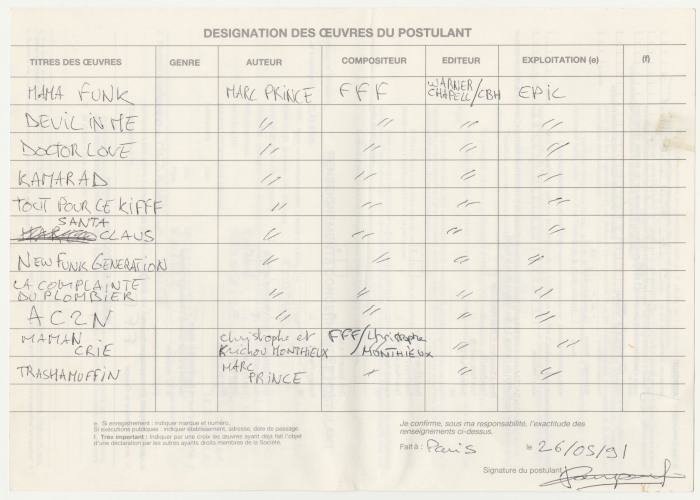 DESIGNATION DES ŒUVRES DU POSTULANT
TITRES DES ŒUVRES GENRE AUTEUR COMPOSITEUR EDITEUR EXPLOITATION (e) (f)
MAMA FUNK MARC PRINCE FFF WARNER CHAPELL/CBH EPIC
DEVIL IN ME // // // //
DOCTOR LOVE // // // //
KAMARAD // // // //
TOUT POUR LE KIFFF // // // //
SANTA
CLAUS // // // //
NEW FUNK GENERATION // // // //
LA COMPLAINTE
DU PLOMBIER // // // //
AC2N // // // //
MAMAN
CRIE christophe et
MONTHIEUX FFF/christophe
MONTHIEUX // //
TRASHAMUFFIN MARC
PRINCE // // //
e. Si enregistrement : indiquer marque et numéro.
Si exécutions publiques : indiquer établissement, adresse, date de passage.
f. Très important : Indiquer par une croix les œuvres ayant déjà fait l'objet
d'une déclaration par les autres ayants droits membres de la Société.
Je confirme, sous ma responsabilité, l'exactitude des
renseignements ci-dessus.
Fait à : Paris le 26/05/91
Signature du postulant